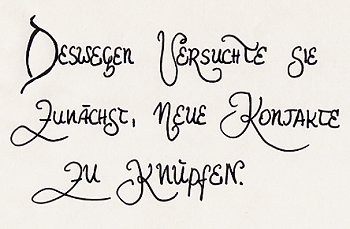 Deswegen Versuchte sie
Zunächst, Neue Kontakte
Zu Knüpfen.